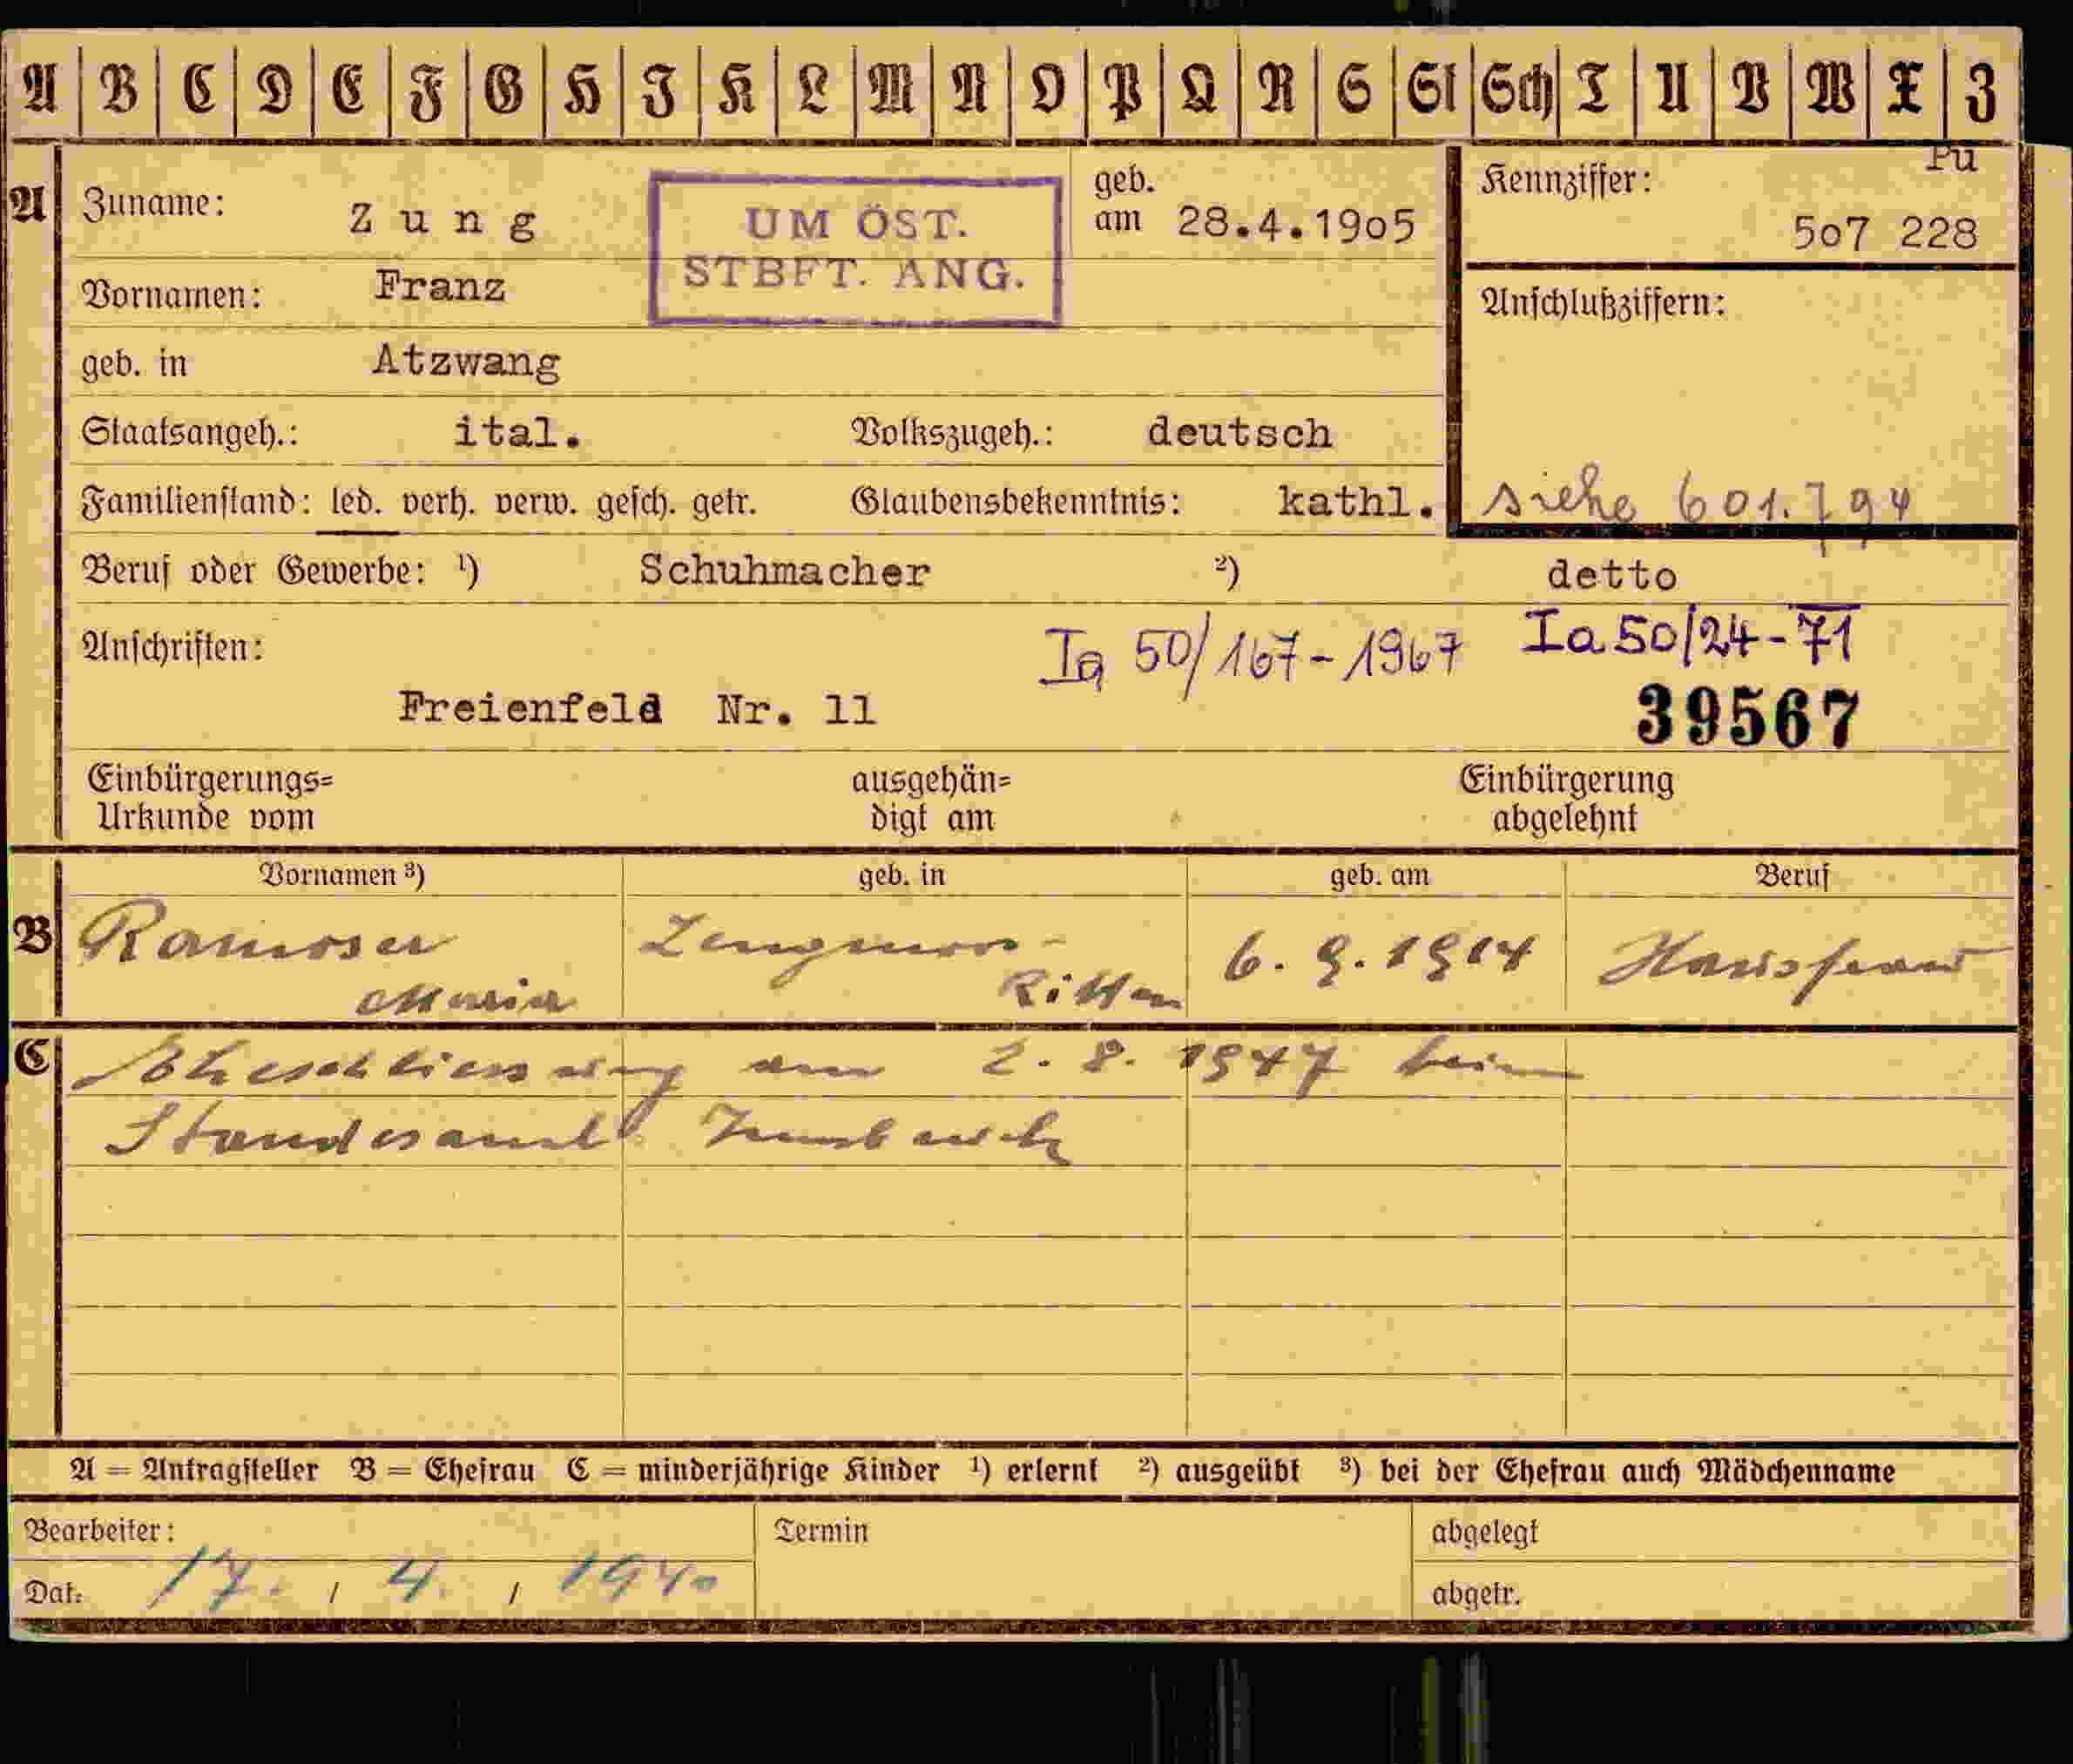 A B C D E F G H I K L M N O P Q R S St Sch T U V W X Z
Pu
A Zuname: Zung
UM ÖST.
STBFT. ANG.
geb. am 28.4.1905
Kennziffer: 507 228
Vornamen: Franz
Anschlußziffern:
geb. in Atzwang
Staatsangeh.: ital. Volkszugeh.: deutsch
Familienstand: led. verh. verw. gesch. getr. Glaubensbekenntnis: kathl.
siehe 601.794
Beruf oder Gewerbe: ¹) Schuhmacher ²) detto
Anschriften: Ia 50/167-1967 Ia 50/24-71
Freienfeld Nr. 11 39567
Einbürgerungs= ausgehän= Einbürgerung
Urkunde vom digt am abgelehnt
Vornamen ³) geb. in geb. am Beruf
B Ramoser 6. 9. 1914 Hausfrau
Maria Ritten
C Eheschliessung am 2. 8. 1947 beim
Standesamt
A = Antragsteller B = Ehefrau C = minderjährige Kinder ¹) erlernt ²) ausgeübt ³) bei der Ehefrau auch Mädchenname
Bearbeiter: Termin abgelegt
Dat: 17. / 4. / 1940 abgetr.